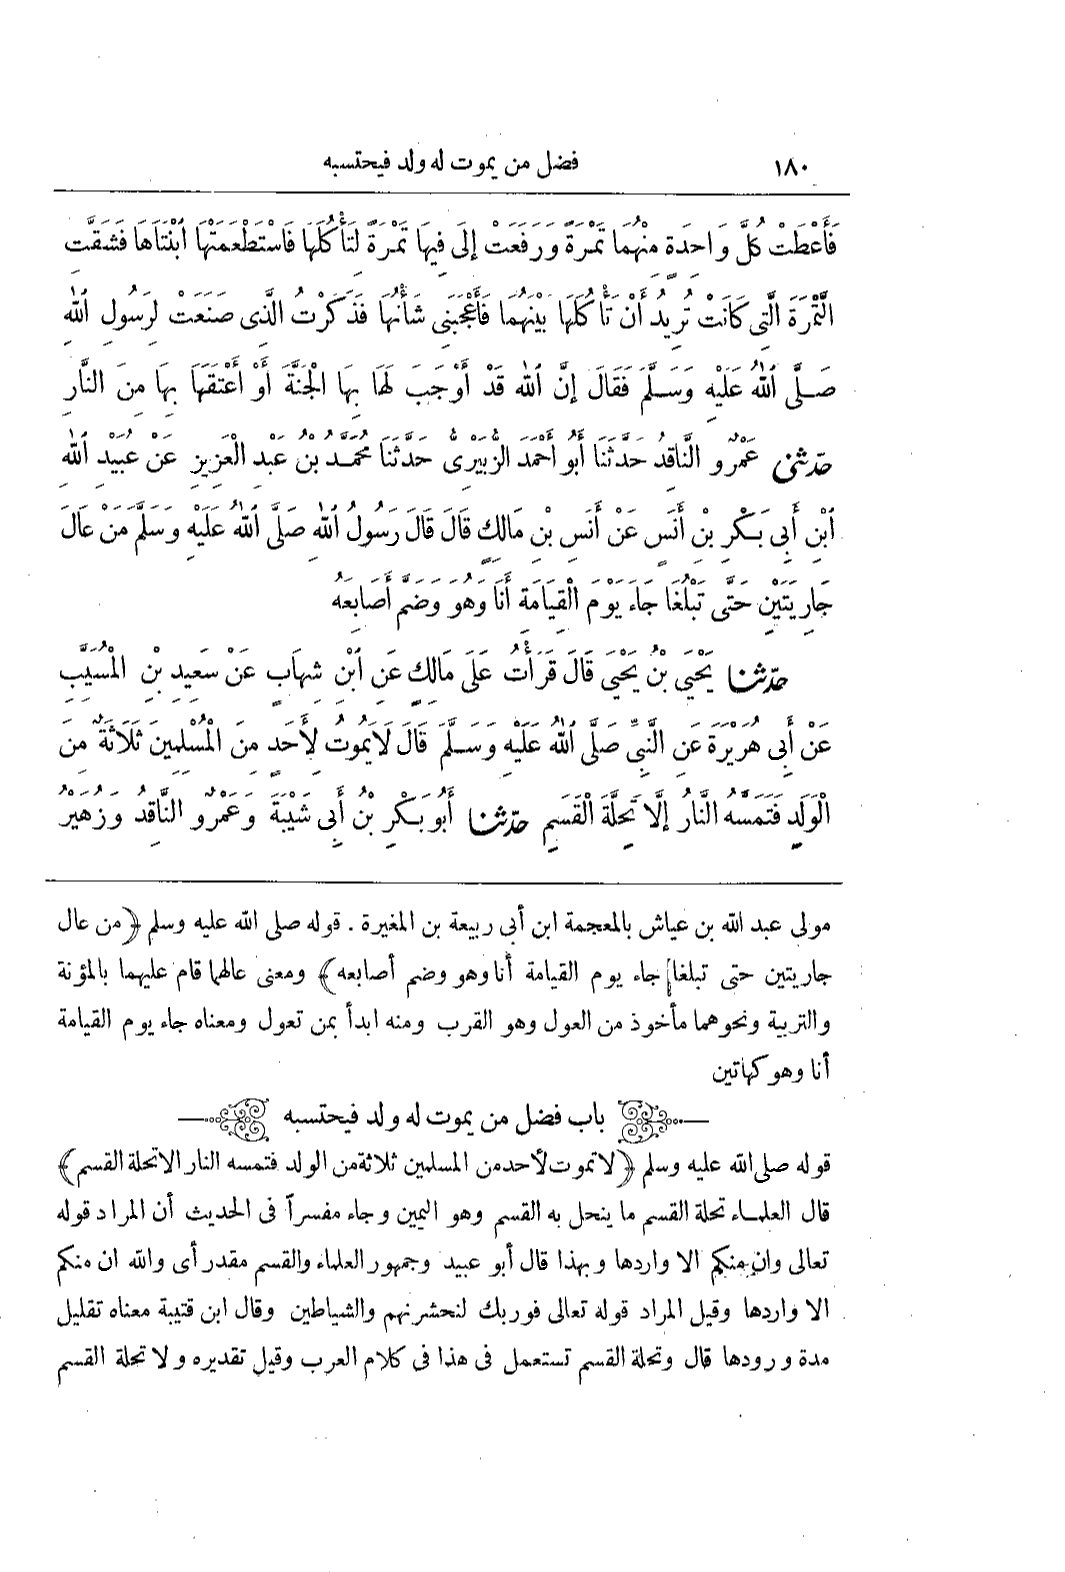 ١٨٠ فضل من يموت له ولد فيحتسبه
فَأَعْطَتْ كُلَّ وَاحِدَةٍ مِنْهُمَا تَمْرَةً وَرَفَعَتْ إِلَى فِيهَا تَمْرَةً لِتَأْكُلَهَا فَاسْتَطْعَمَتْهَا ابْنَتَاهَا فَشَقَّتِ
التَّمْرَةَ الَّتِي كَانَتْ تُرِيدُ أَنْ تَأْكُلَهَا بَيْنَهُمَا فَأَعْجَبَنِي شَأْنُهَا فَذَكَرْتُ الَّذِي صَنَعَتْ لِرَسُولِ اللهِ
صَلَّى اللهُ عَلَيْهِ وَسَلَّمَ فَقَالَ إِنَّ اللهَ قَدْ أَوْجَبَ لَهَا بِهَا الْجَنَّةَ أَوْ أَعْتَقَهَا بِهَا مِنَ النَّارِ
حدثني عَمْرٌو النَّاقِدُ حَدَّثَنَا أَبُو أَحْمَدَ الزُّبَيْرِيُّ حَدَّثَنَا مُحَمَّدُ بْنُ عَبْدِ الْعَزِيزِ عَنْ عُبَيْدِ اللهِ
ابْنِ أَبِي بَكْرِ بْنِ أَنَسٍ عَنْ أَنَسِ بْنِ مَالِكٍ قَالَ قَالَ رَسُولُ اللهِ صَلَّى اللهُ عَلَيْهِ وَسَلَّمَ مَنْ عَالَ
جَارِيَتَيْنِ حَتَّى تَبْلُغَا جَاءَ يَوْمَ الْقِيَامَةِ أَنَا وَهُوَ وَضَمَّ أَصَابِعَهُ
حدثنا يَحْيَى بْنُ يَحْيَى قَالَ قَرَأْتُ عَلَى مَالِكٍ عَنِ ابْنِ شِهَابٍ عَنْ سَعِيدِ بْنِ الْمُسَيَّبِ
عَنْ أَبِي هُرَيْرَةَ عَنِ النَّبِيِّ صَلَّى اللهُ عَلَيْهِ وَسَلَّمَ قَالَ لَا يَمُوتُ لِأَحَدٍ مِنَ الْمُسْلِمِينَ ثَلَاثَةٌ مِنَ
الْوَلَدِ فَتَمَسَّهُ النَّارُ إِلَّا تَحِلَّةَ الْقَسَمِ حدثنا أَبُو بَكْرِ بْنُ أَبِي شَيْبَةَ وَعَمْرٌو النَّاقِدُ وَزُهَيْرُ
مولى عبد الله بن عياش بالمعجمة ابن أبي ربيعة بن المغيرة . قوله صلى الله عليه وسلم ﴿من عال
جاريتين حتى تبلغا جاء يوم القيامة أنا وهو وضم أصابعه﴾ ومعنى عالهما قام عليهما بالمؤنة
والتربية ونحوهما مأخوذ من العول وهو القرب ومنه ابدأ بمن تعول ومعناه جاء يوم القيامة
أنا وهو كهاتين
باب فضل من يموت له ولد فيحتسبه
قوله صلى الله عليه وسلم ﴿لا تموت لأحد من المسلمين ثلاثة من الولد فتمسه النار الا تحلة القسم﴾
قال العلماء تحلة القسم ما ينحل به القسم وهو اليمين وجاء مفسراً في الحديث أن المراد قوله
تعالى وان منكم الا واردها وبهذا قال أبو عبيد وجمهور العلماء والقسم مقدر أى والله ان منكم
الا واردها وقيل المراد قوله تعالى فوربك لنحشرنهم والشياطين وقال ابن قتيبة معناه تقليل
مدة ورودها قال وتحلة القسم تستعمل فى هذا فى كلام العرب وقيل تقديره ولا تحلة القسم